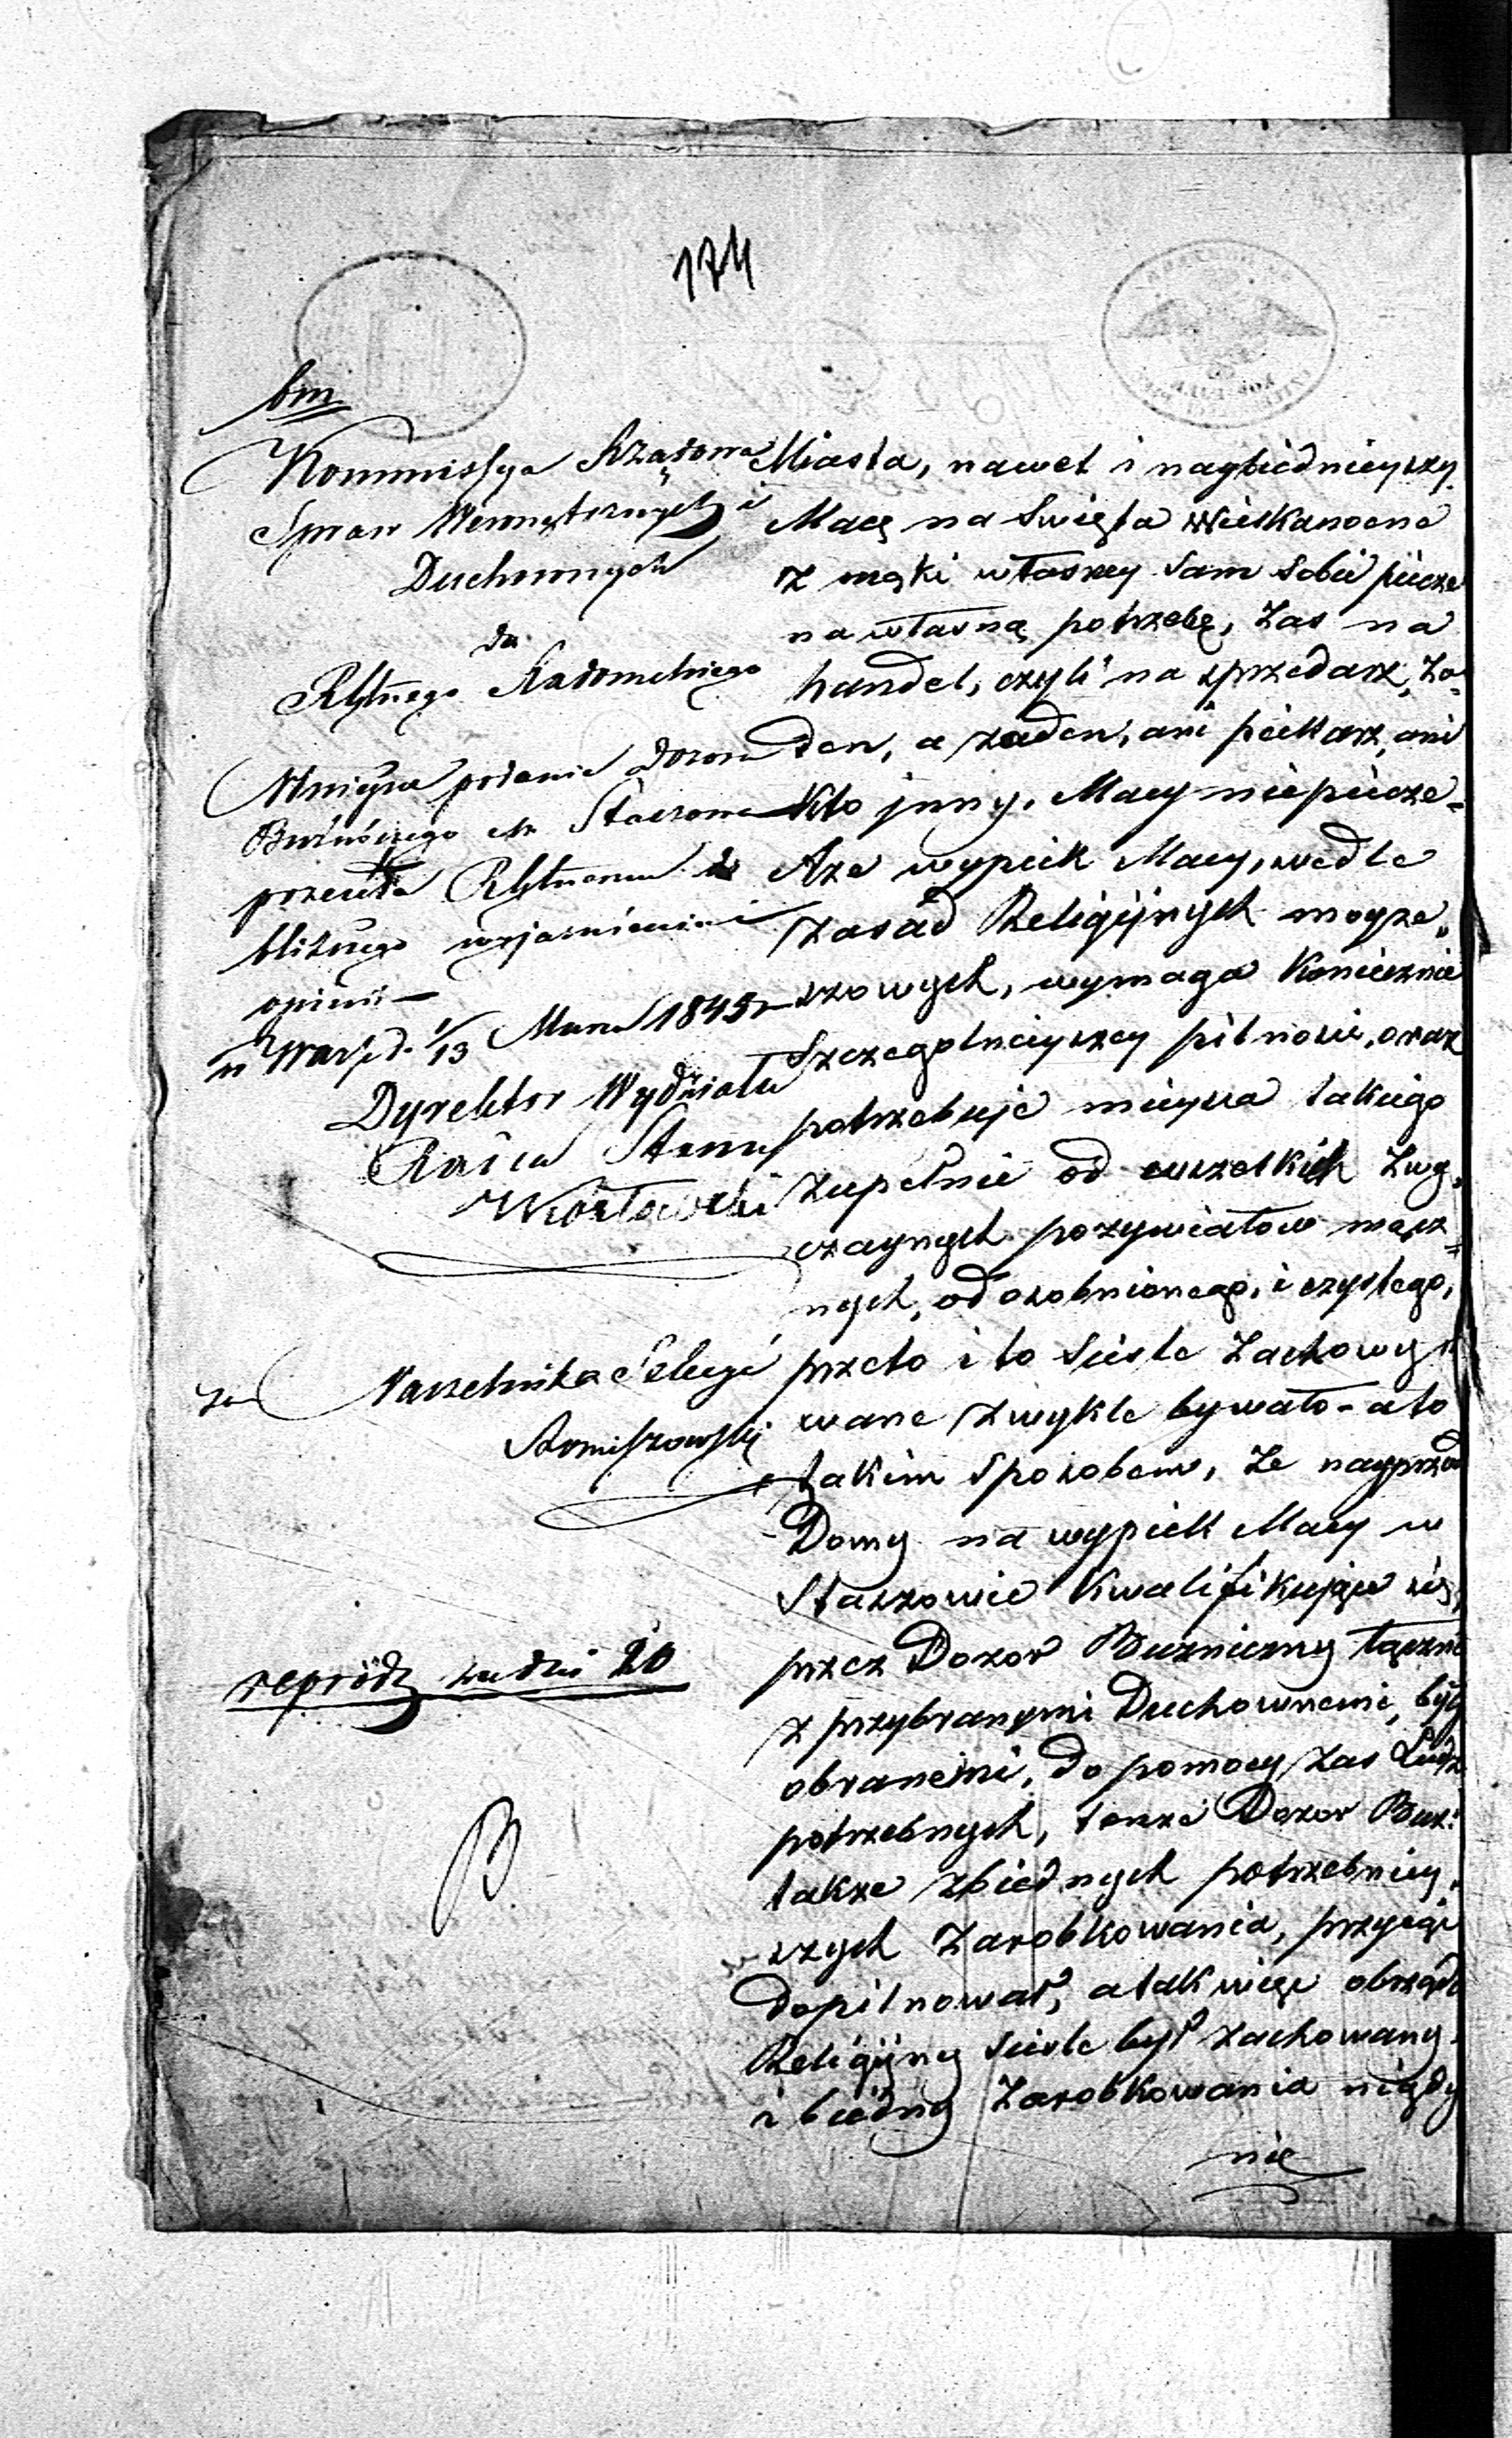 174
bm
Kommissya Rządowa
Spraw Wewnętrznych i
Duchownych
do
Rządu Gubernialnego Radomskiego
Ninieysze podanie Dozoru
Bużniczego m Staszowa
przesyła
bliższego wyjaśnienia i
opinii —
w Warsz d. 1/13 Marca 1845 r
Dyrektor Wydziału
Radca Stanu
Kozłowski
za Naczelnika Sekcyi
20
B
Miasta, nawet i naybiednieyszy
Macę na Swięta Wielkanocne
z mąki własney sam sobie piecze
na własną potrzebę, zas na
handel, czyli na sprzedarz, ża-
den, a żaden, ani piekarz, ani
kto inny, Macy niepiecze -
Aże wypiek Macy, wedle
zasad Religijnych moyże„
szowych, wymaga koniecznie
szczegolnieyszey pilnosci, oraz
potrzebuje mieysca takiego
zupełnie od wszelkich zwy„
czaynych pożywiałow mącz=
nych, odosobnionego, i czystego,
przeto i to scisle zachowy„
wane zwykle bywało - a to
takim sposobem, że nayprzód
Domy na wypiek Macy w
Staszowie kwalifikujące się,
przez Dozor Bużniczny łącznie
z przybranymi Duchownemi, były
obranemi, do pomocy zas Ludzi
potrzebnych, tenże Dozor Buż:
także zbiednych potrzebniey„
szych zarobkowania, przyiąć
dopilnował, a tak więc obrządek
Religijny scisle był zachowany
i biedny zarobkowania nigdy
nie